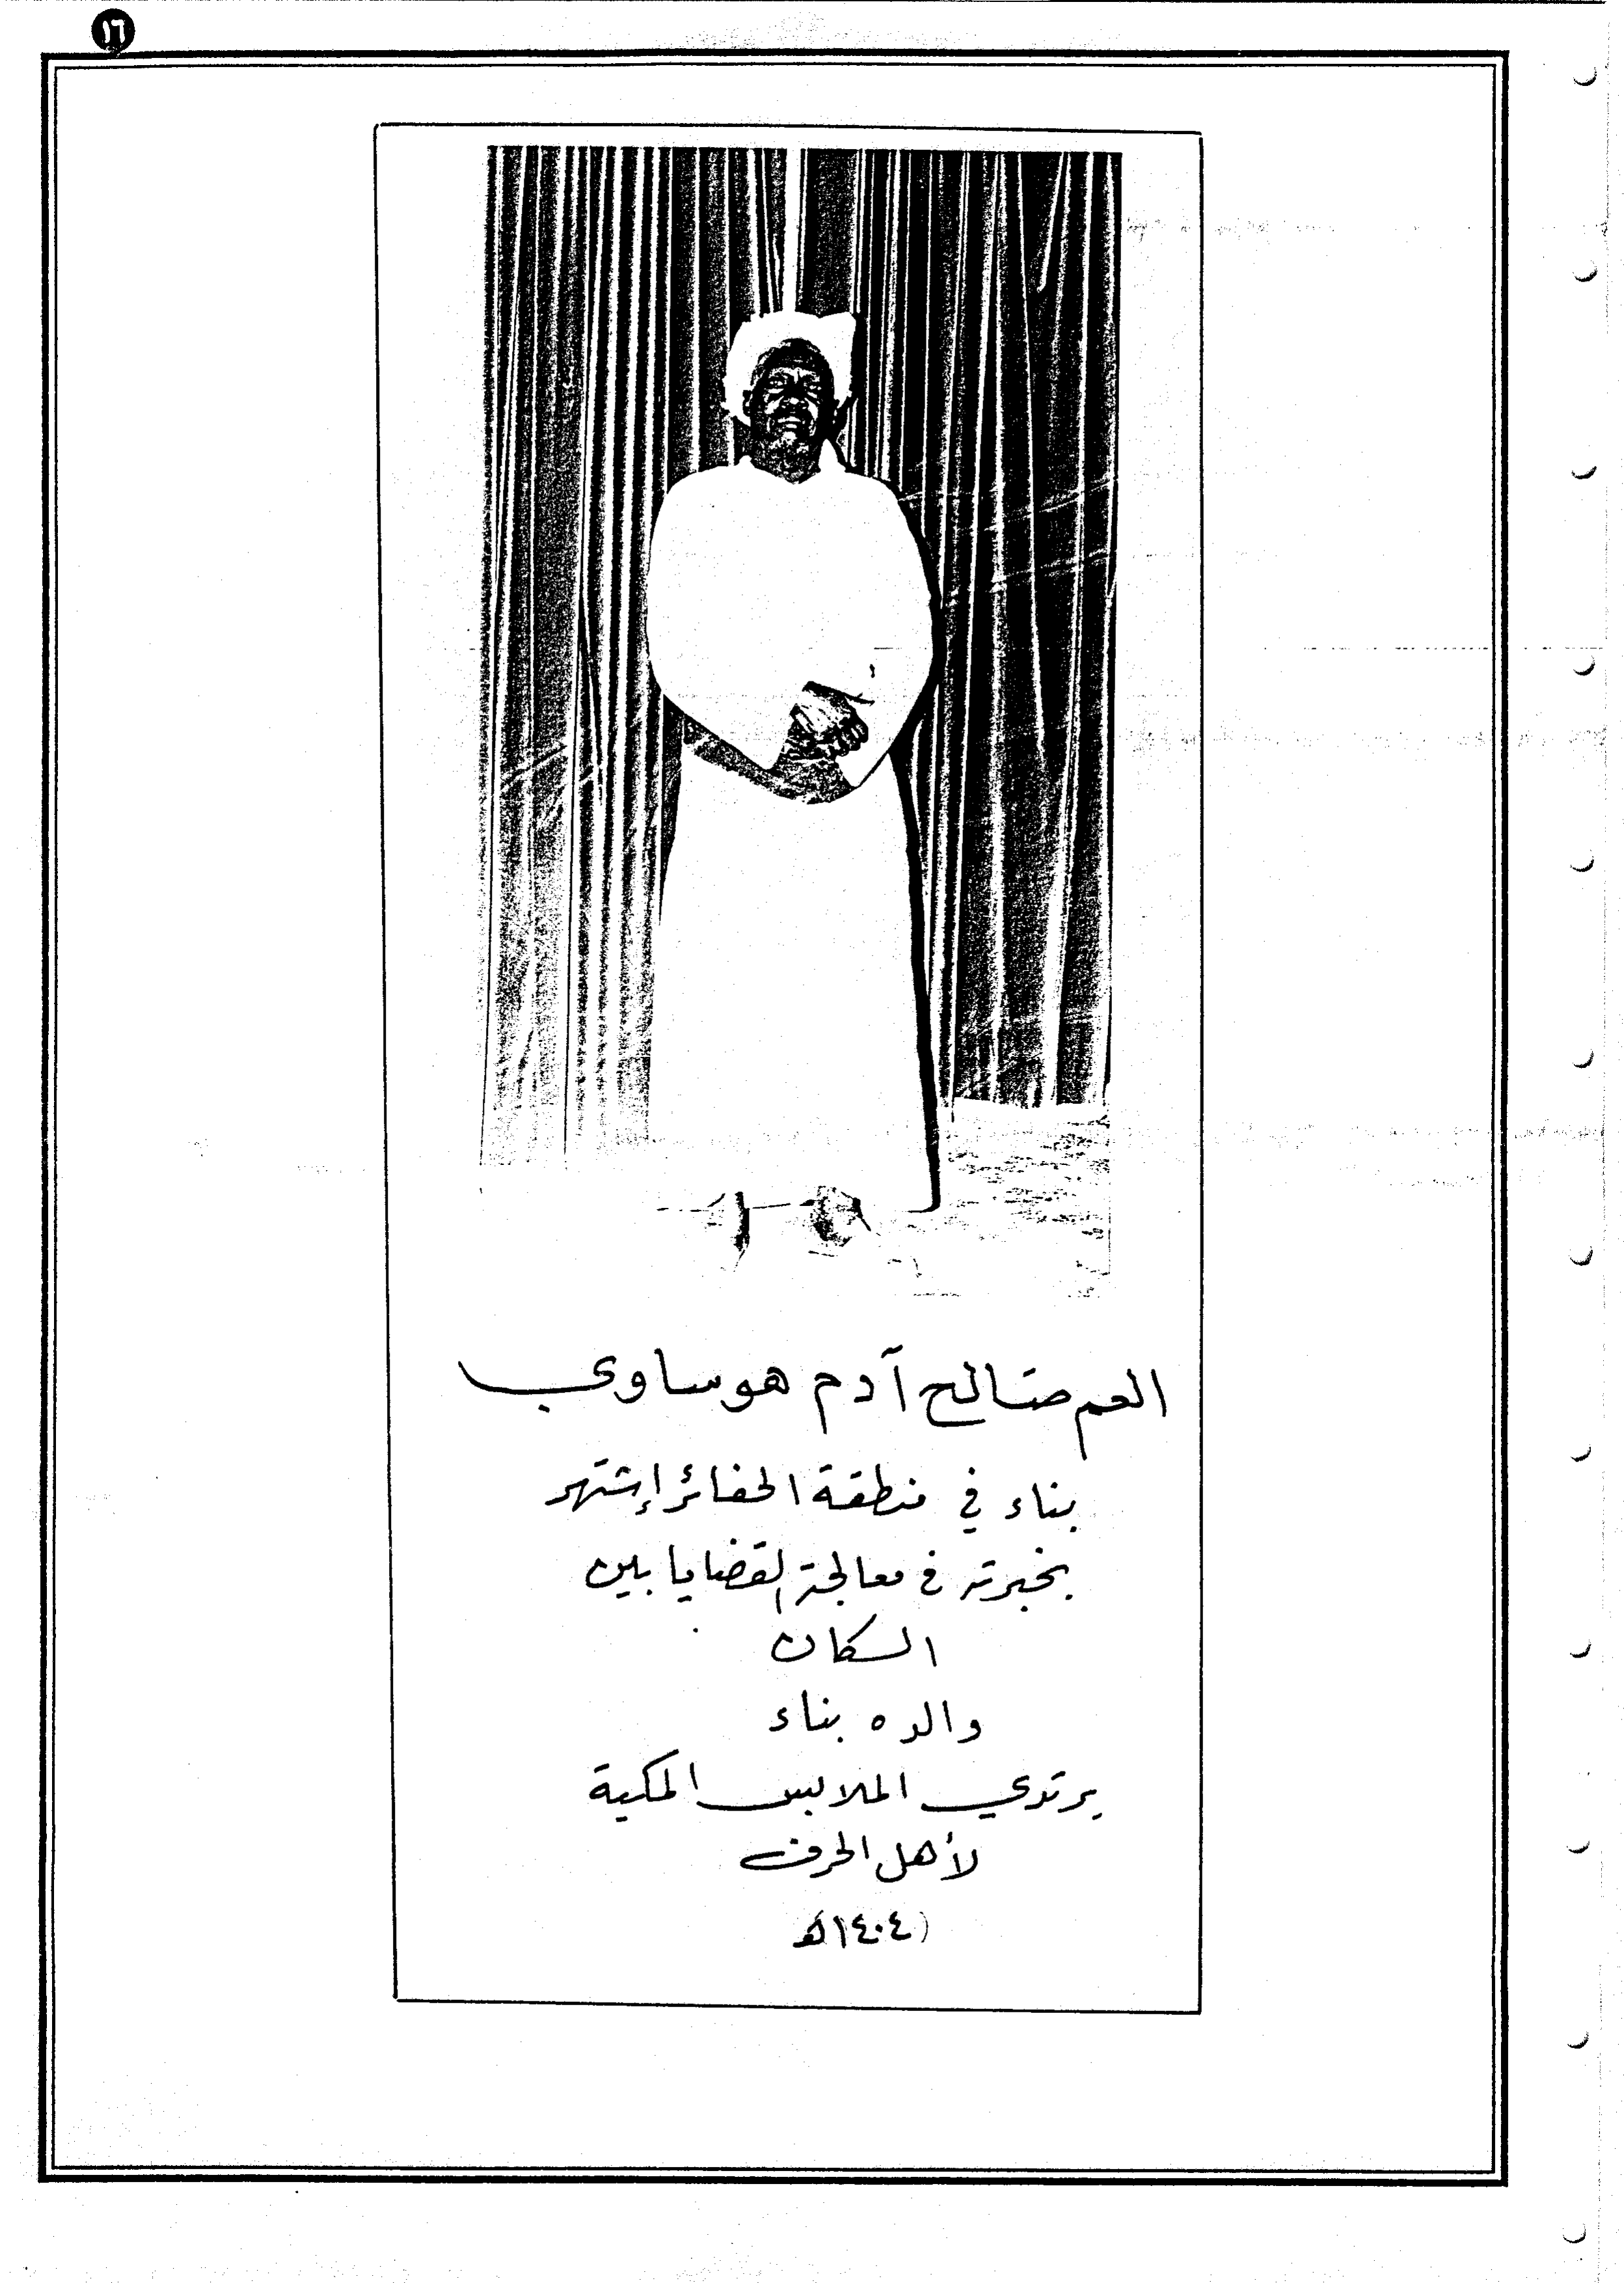 ١٦
العم صالح آدم هوساوي
بناء في منطقة الحفائر إشتهر
بخبرته في معالجة القضايا بين
السكان
والده بناء
يرتدي الملابس المكية
لأهل الحرف
(١٤٠٤هـ